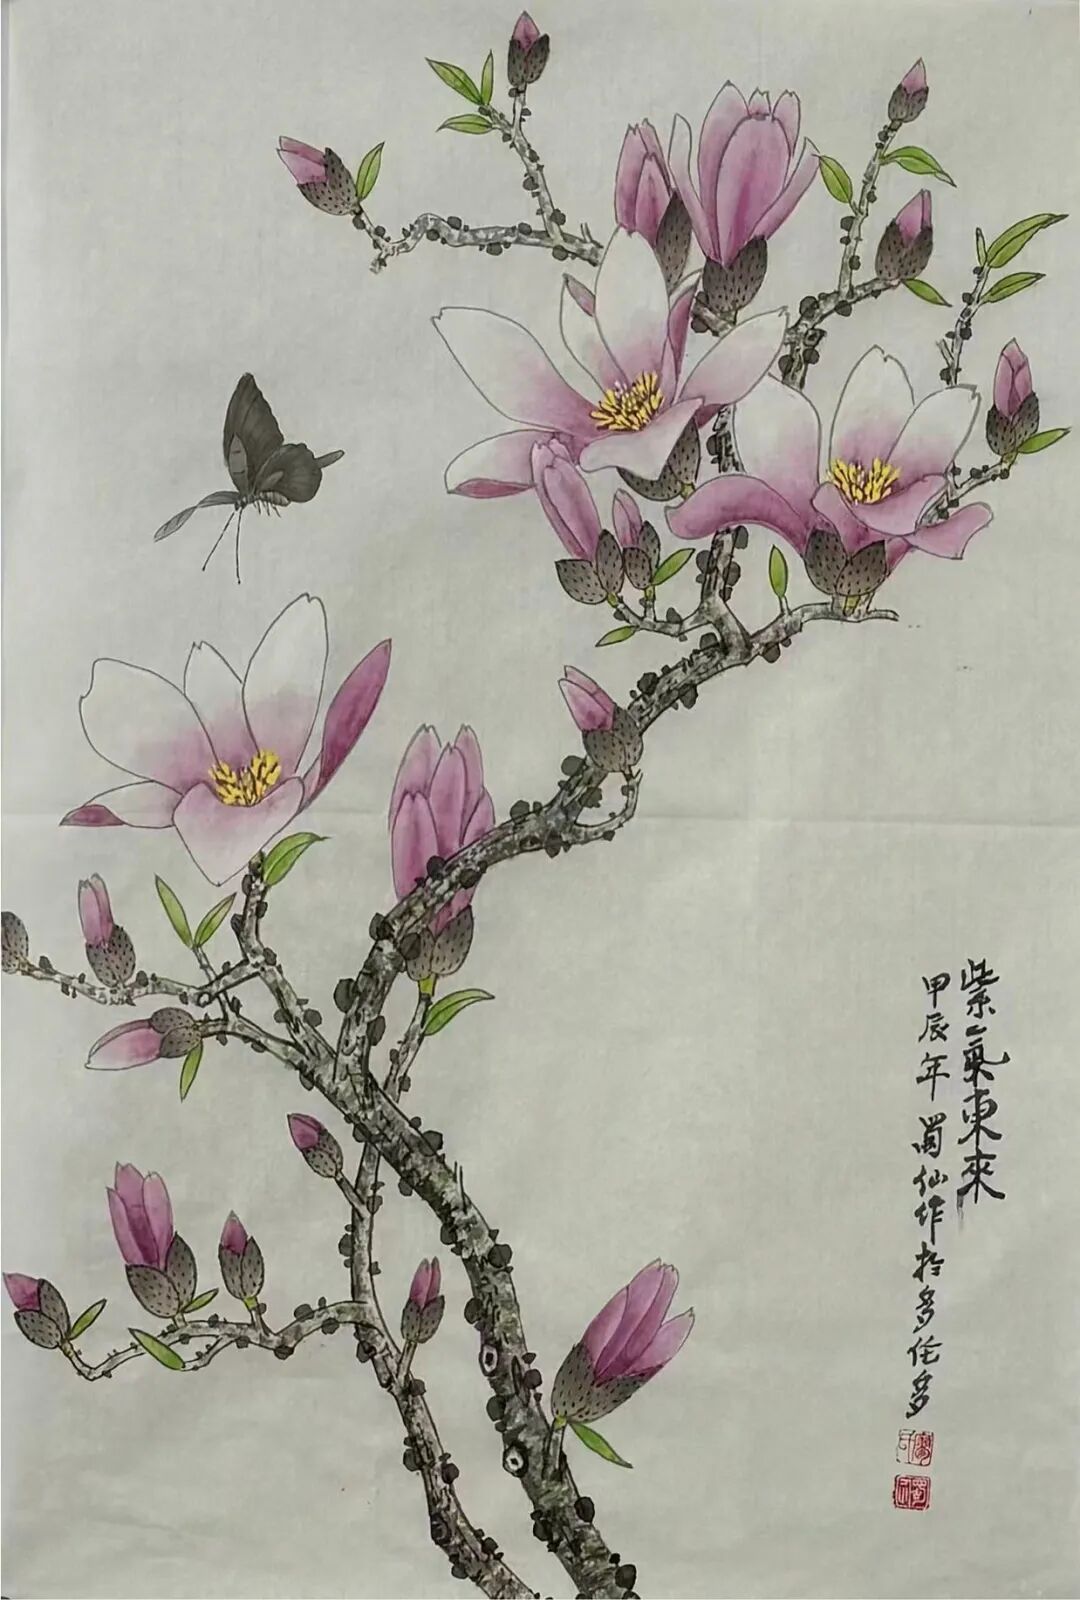 紫氣東來
甲辰年 蜀仙作於多伦多